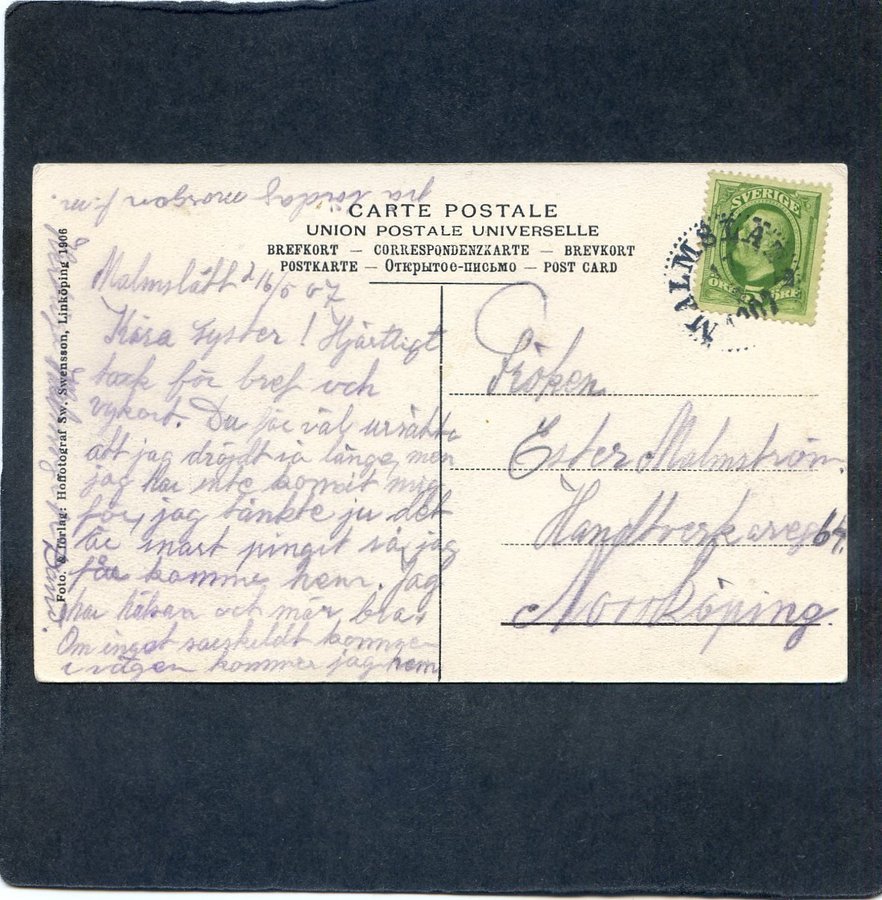 CARTE POSTALE
UNION POSTALE UNIVERSELLE
BREFKORT — CORRESPONDENZKARTE — BREVKORT
POSTKARTE — Открытое-письмо — POST CARD
SVERIGE
5 ÖRE
MALMSLÄTT
1907
Foto. & förlag: Hoffotograf Sw. Swensson, Linköping 1906
Malmslätt 16/5 07
Kära syster! Hjärtligt
tack för bref och
vykort. Du får väl ursäkta
att jag dröjdt så länge, men
jag har inte kommit mig
för, jag tänkte ju det
är snart pingst så jag
får komma hem. Jag
har hälsan och mår bra.
Om inget särskildt kommer
i vägen kommer jag hem
på lördag morgon f.m.
Fröken
Ester Malmström.
Handtverkareg 64.
Norrköping.